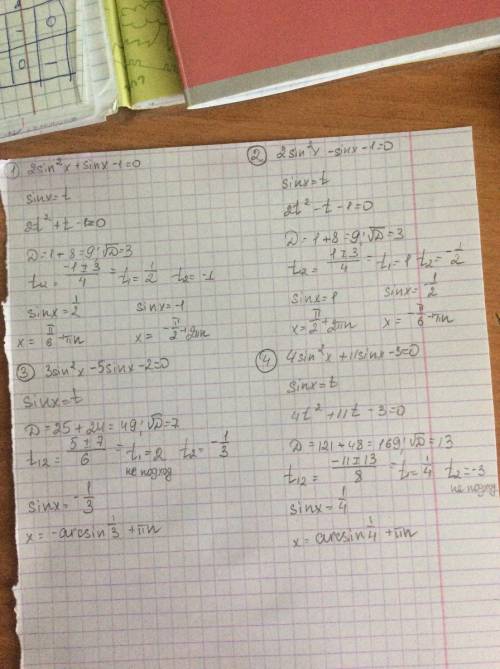 ① 2sin²x + sinx - 1 = 0
sinx = t
2t² + t - 1 = 0
D = 1 + 8 = 9; √D = 3
t₁₂ = (-1 ± 3)/4 = t₁ = 1/2 t₂ = -1
sinx = 1/2 sinx = -1
x = π/6 + πn x = -π/2 + 2πn
② 2sin²x - sinx - 1 = 0
sinx = t
2t² - t - 1 = 0
D = 1 + 8 = 9; √D = 3
t₁₂ = (1 ± 3)/4 = t₁ = 1 t₂ = -1/2
sinx = 1 sinx = -1/2
x = π/2 + 2πn x = -π/6 + πn
③ 3sin²x - 5sinx - 2 = 0
sinx = t
D = 25 + 24 = 49; √D = 7
t₁₂ = (5 ± 7)/6 = t₁ = 2 t₂ = -1/3
не подход
sinx = -1/3
x = -arcsin 1/3 + πn
④ 4sin²x + 11sinx - 3 = 0
sinx = t
4t² + 11t - 3 = 0
D = 121 + 48 = 169; √D = 13
t₁₂ = (-11 ± 13)/8 = t₁ = 1/4 t₂ = -3
не подход
sinx = 1/4
x = arcsin 1/4 + πn